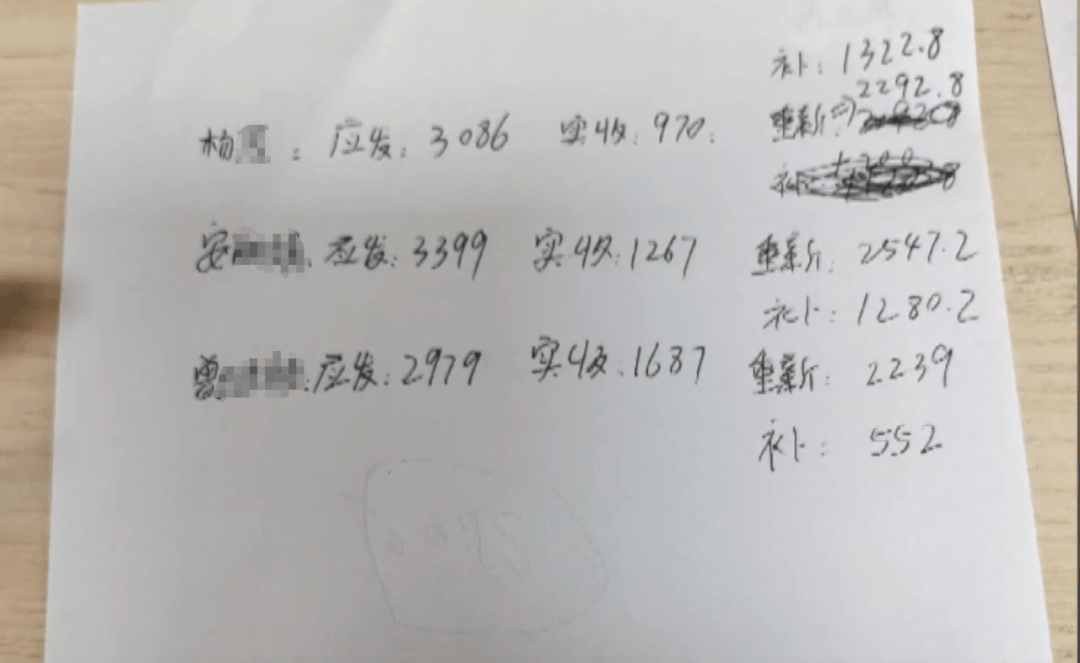 补：1322.8
2292.8
杨：应发：3086 实收：970.
重新
补
安、应发：3399 实收：1267 重新：2547.2
补：1280.2
曾：应发：2979 实收：1687 重新：2239
补：552